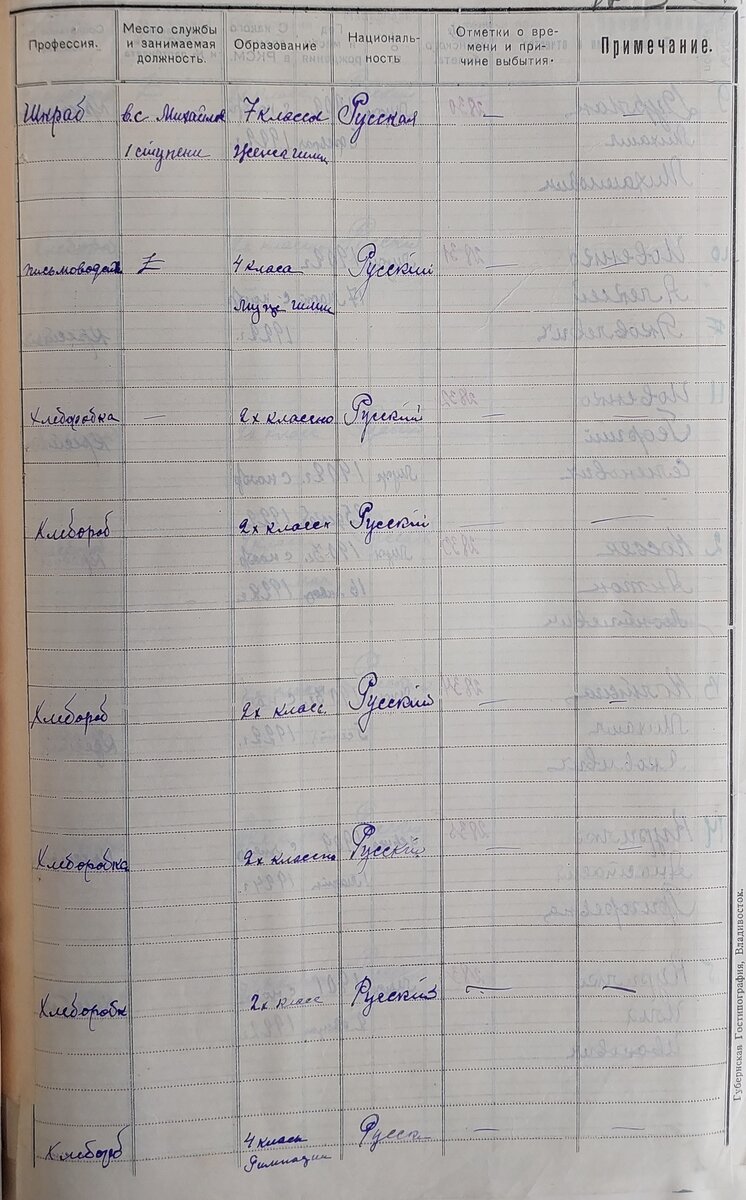 Профессия.
Место службы и занимаемая должность.
Образование
Националь-ность
Отметки о вре-мени и при-чине выбытия.
Примечание.
Шкраб в.с. Михайлов 7 класса Русская — —
1 ступени женск гимн
письмоводит 4 класа Русский — —
муж гимн
Хлеборобка — 2х классно Русский — —
Хлебороб 2х класск Русскій — —
Хлебороб 2х класс. Русский — —
Хлеборобка 2х классно Русский — —
Хлеборобк 2х класс Русский — —
Хлебороб 4 класс Русск — —
Гимназии
Губернская Гостипография, Владивосток.